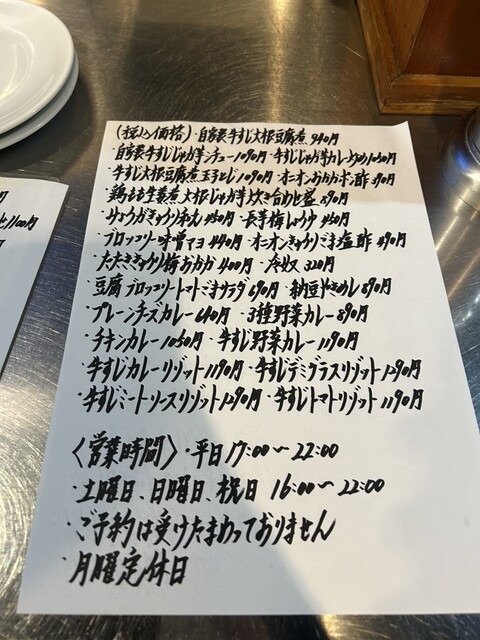 (税込価格)・自家製牛すじ大根豆腐煮940円
・自家製牛すじじゃが芋シチュー1090円・牛すじじゃが芋カレー炒め1050円
・牛すじ大根豆腐煮玉子とじ1090円・オニオンおかかポン酢390円
・鶏もも生姜煮大根じゃが芋炊き合わせ盛890円
・みょうがきゅうり和え450円・長芋梅しょうゆ450円
・ブロッコリー味噌マヨ440円・オニオンきゅうりごま塩酢490円
・たたききゅうり梅おかか400円・冷奴320円
・豆腐ブロッコリートマトごまサラダ690円・納豆やきめし890円
・プレーンチーズカレー640円・3種野菜カレー890円
・チキンカレー1050円・牛すじ野菜カレー1190円
・牛すじカレーリゾット1190円・牛すじデミグラスリゾット1290円
・牛すじミートソースリゾット1290円・牛すじトマトリゾット1190円
〈営業時間〉・平日17:00〜22:00
・土曜日、日曜日、祝日16:00〜22:00
・ご予約は受けたまわっておりません
・月曜定休日
1100円